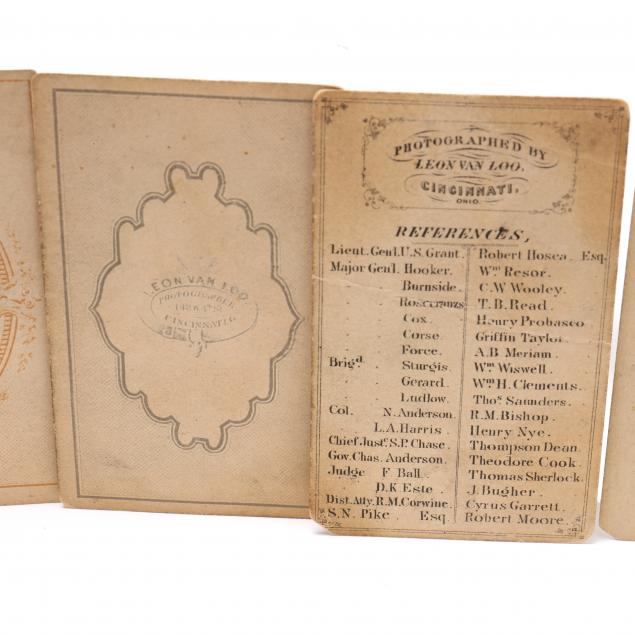 LEON VAN LOO
PHOTOGRAPHER
CINCINNATI.O.
PHOTOGRAPHED BY
LEON VAN LOO.
CINCINNATI.
OHIO.
REFERENCES,
Lieut. Genl. U.S. Grant. Robert Hosea Esq.
Major Genl. Hooker. Wm Resor.
Burnside C.W. Wooley.
Rosecranzs T.B. Read.
Cox. Henry Probasco.
Corse. Griffin Taylor.
Force. A.B. Meriam.
Brigd. Sturgis. Wm Wiswell.
Gerard. Wm H. Clements.
Ludlow. Thos. Saunders.
Col. N. Anderson. R.M. Bishop.
L.A. Harris. Henry Nye.
Chief Just. S.P. Chase. Thompson Dean.
Gov. Chas. Anderson. Theodore Cook.
Judge F Ball. Thomas Sherlock.
D.K Este. J. Bugher.
Dist. Atty. R.M. Corwine. Cyrus Garrett.
S.N. Pike Esq. Robert Moore.